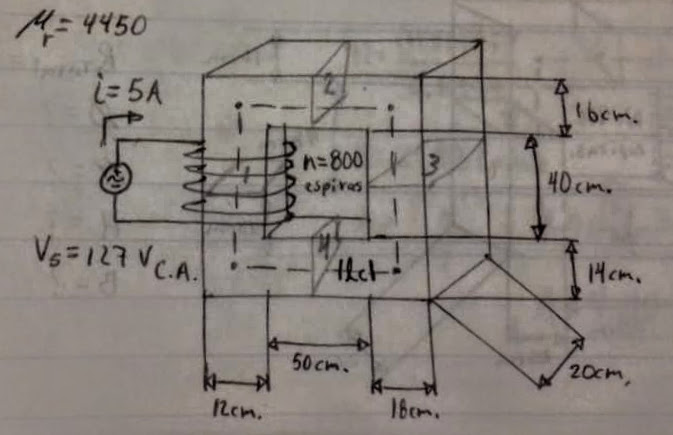 μr = 4450
i = 5A
Vs = 127 V C.A.
n = 800
espiras
1
2
3
4
lct
16cm.
40cm.
14cm.
50cm.
12cm.
18cm.
20cm.